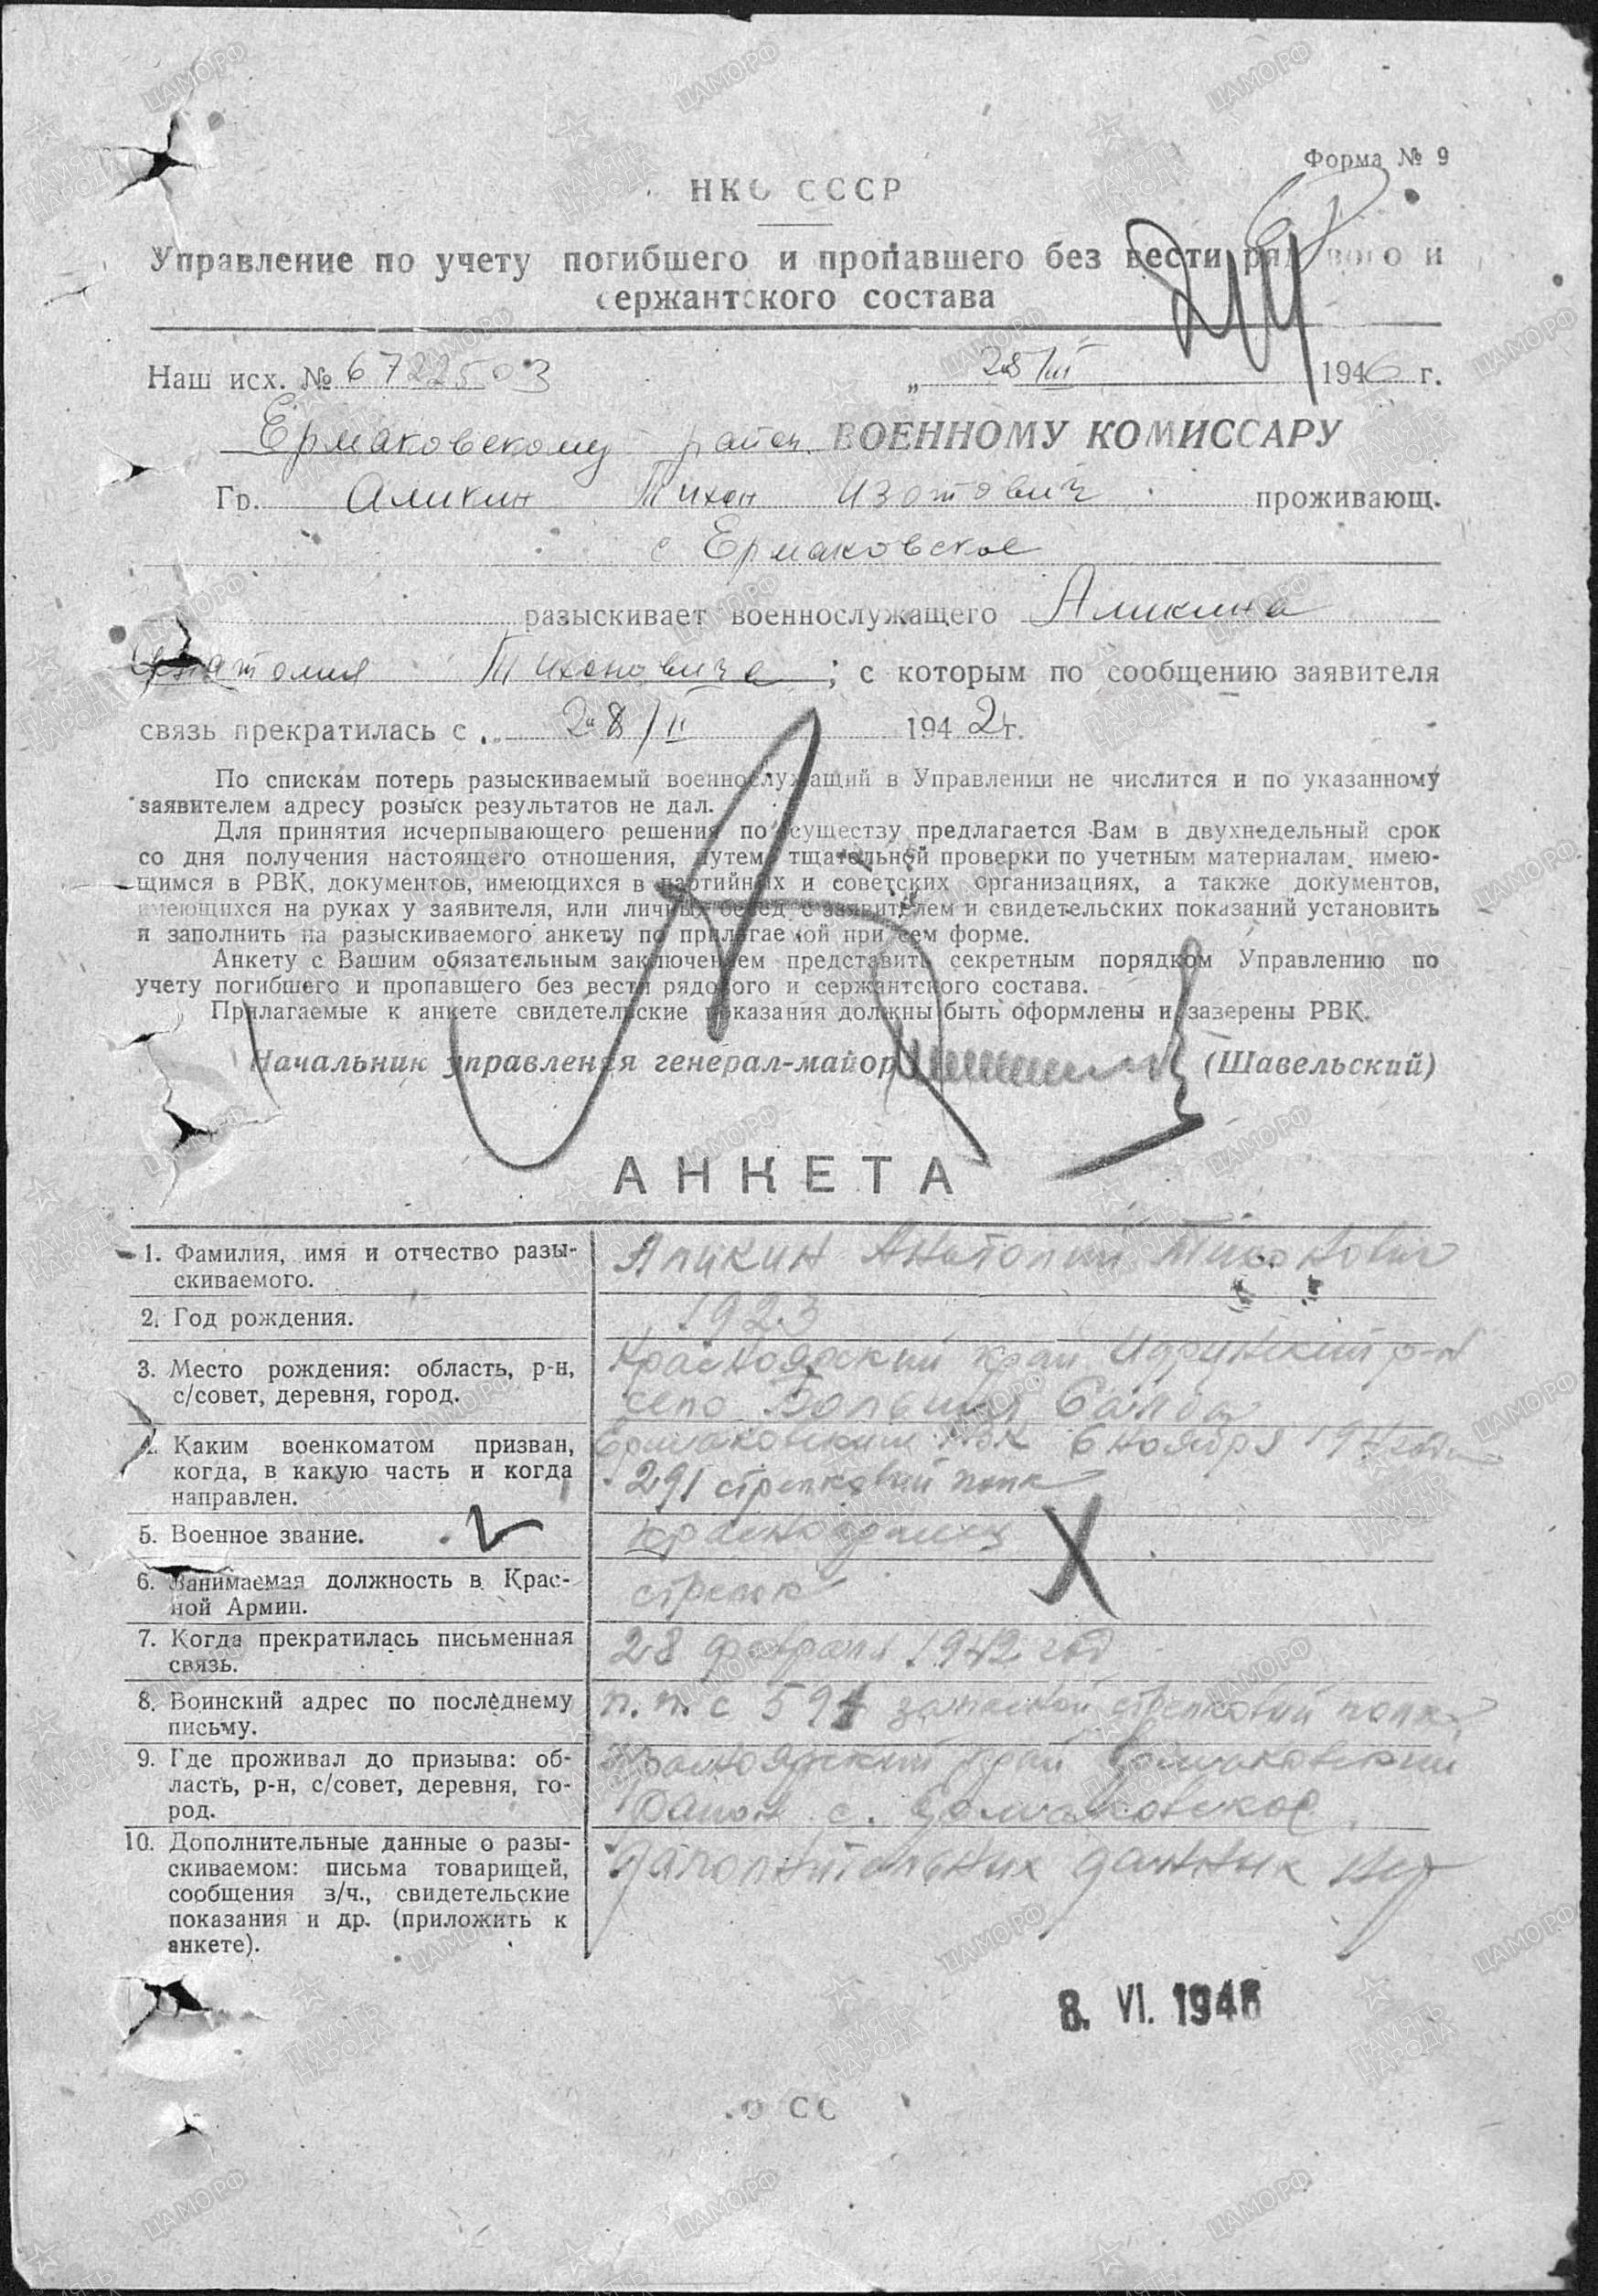 Форма № 9
НКО СССР
Управление по учету погибшего и пропавшего без вести рядового и
сержантского состава
Наш исх. № 6722503 „ 25/III 1946 г.
Ермаковскому район. ВОЕННОМУ КОМИССАРУ
Гр. Аликин Тихон Изотович проживающ.
с Ермаковское
разыскивает военнослужащего Аликина
Анатолия Тихоновича; с которым по сообщению заявителя
связь прекратилась с „ 28/II 1942 г.
По спискам потерь разыскиваемый военнослужащий в Управлении не числится и по указанному
заявителем адресу розыск результатов не дал.
Для принятия исчерпывающего решения по существу предлагается Вам в двухнедельный срок
со дня получения настоящего отношения, путем тщательной проверки по учетным материалам, имею-
щимся в РВК, документов, имеющихся в партийных и советских организациях, а также документов,
имеющихся на руках у заявителя, или личных бесед с заявителем и свидетельских показаний установить
и заполнить на разыскиваемого анкету по прилагаемой при сем форме.
Анкету с Вашим обязательным заключением представить секретным порядком Управлению по
учету погибшего и пропавшего без вести рядового и сержантского состава.
Прилагаемые к анкете свидетельские показания должны быть оформлены и заверены РВК.
Начальник управления генерал-майор (Шавельский)
АНКЕТА
1. Фамилия, имя и отчество разы-
скиваемого.
Аликин Анатолий Тихонович
2. Год рождения.
1923
3. Место рождения: область, р-н,
с/совет, деревня, город.
Красноярский край Идринский р-н
село Большая Салба
4. Каким военкоматом призван,
когда, в какую часть и когда
направлен.
Ермаковским РВК 6 ноября
291 стрелковый полк
5. Военное звание.
красноармеец
6. Занимаемая должность в Крас-
ной Армии.
стрелок
7. Когда прекратилась письменная
связь.
28 февраля 1942 год
8. Воинский адрес по последнему
письму.
п.п.с 594 запасной стрелковый полк
9. Где проживал до призыва: об-
ласть, р-н, с/совет, деревня, го-
род.
Красноярский край Ермаковский
район с. Ермаковское
10. Дополнительные данные о разы-
скиваемом: письма товарищей,
сообщения з/ч., свидетельские
показания и др. (приложить к
анкете).
Дополнительных данных нет
8. VI. 1946